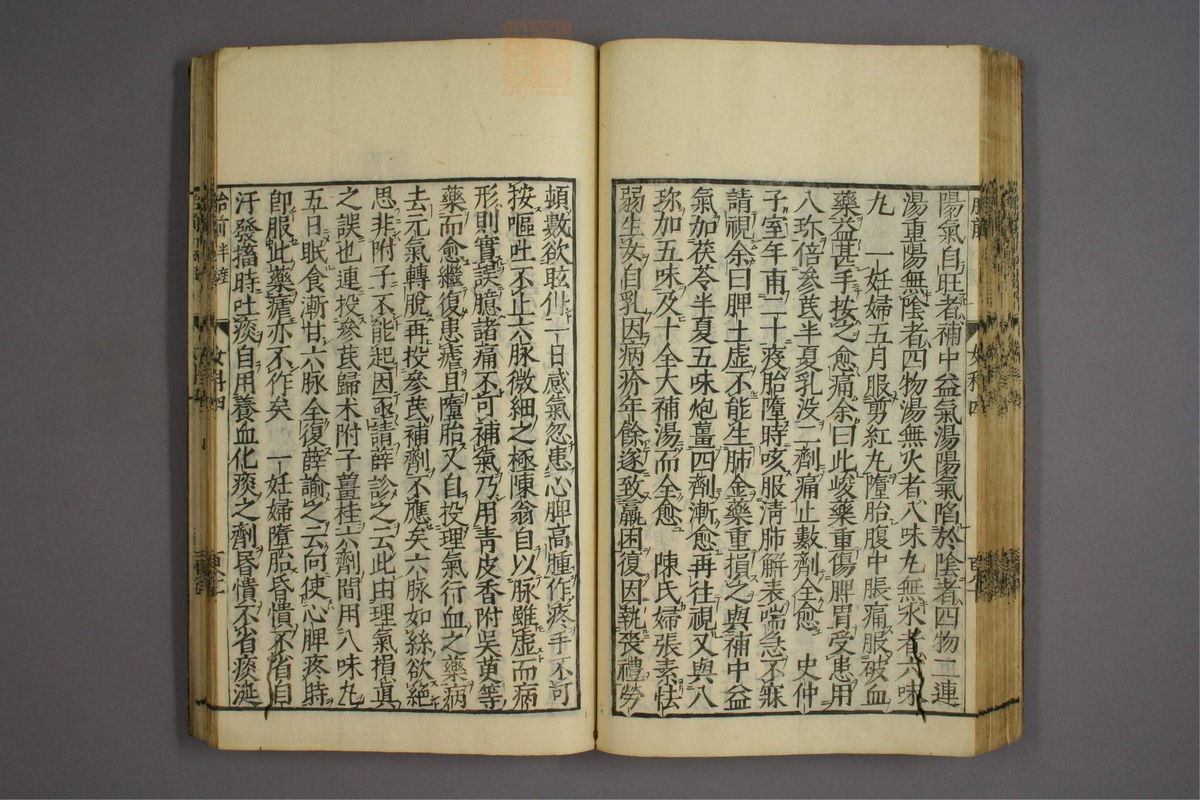 陽氣自旺者補中益氣湯陽氣陷於陰者四物二連
湯重陽無陰者四物湯無火者八味丸無水者六味
丸　一妊婦五月服剪紅丸墮胎腹中脹痛服破血
藥益甚手按之愈痛余曰此峻藥重傷脾胃受患用
八珍倍參芪半夏乳沒二劑痛止數劑全愈　史仲
子室年甫二十疫胎墮時咳服淸肺解表喘急不寐
請視余曰脾土虛不能生肺金藥重損之與補中益
氣加茯苓半夏五味炮薑四劑漸愈再往視又與八
珍加五味及十全大補湯而全愈　陳氏婦張素怯
弱生女自乳因病疥年餘遂致羸困復因執喪禮勞
頓數欲眩仆一日感氣忽患心脾高腫作疼手不可
按嘔吐不止六脉微細之極陳翁自以脉雖虛而病
形則實誤臆諸痛不可補氣乃用靑皮香附吳萸等
藥而愈繼復患瘧且墮胎又自投理氣行血之藥病
去元氣轉脫再投參芪補劑不應矣六脉如絲欲絕
思非附子不能起因亟請薛診之云此由理氣損眞
之誤也連投參芪歸术附子薑桂六劑間用八味丸
五日眠食漸甘六脉全復薛諭之云向使心脾疼時
卽服此藥瘧亦不作矣　一妊婦墮胎昏憒不省自
汗發搐時吐痰自用養血化痰之劑昏憒不省痰涎
胎前
女科四